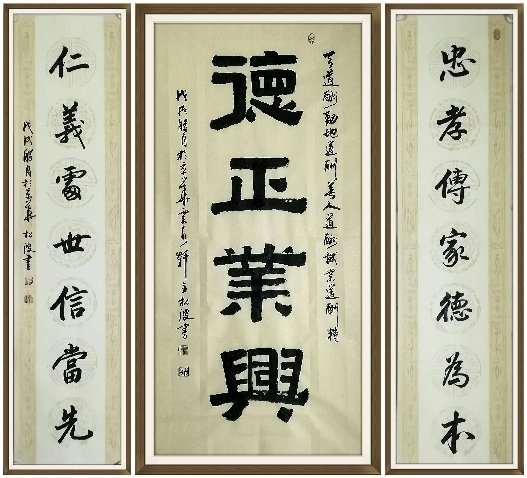 忠孝傳家德為本
天道酬勤地道酬善人道酬誠業道酬精
德正業興
戊戌臘月於京華
松波書
仁義處世信當先
戊戌臘月於京華 松波書